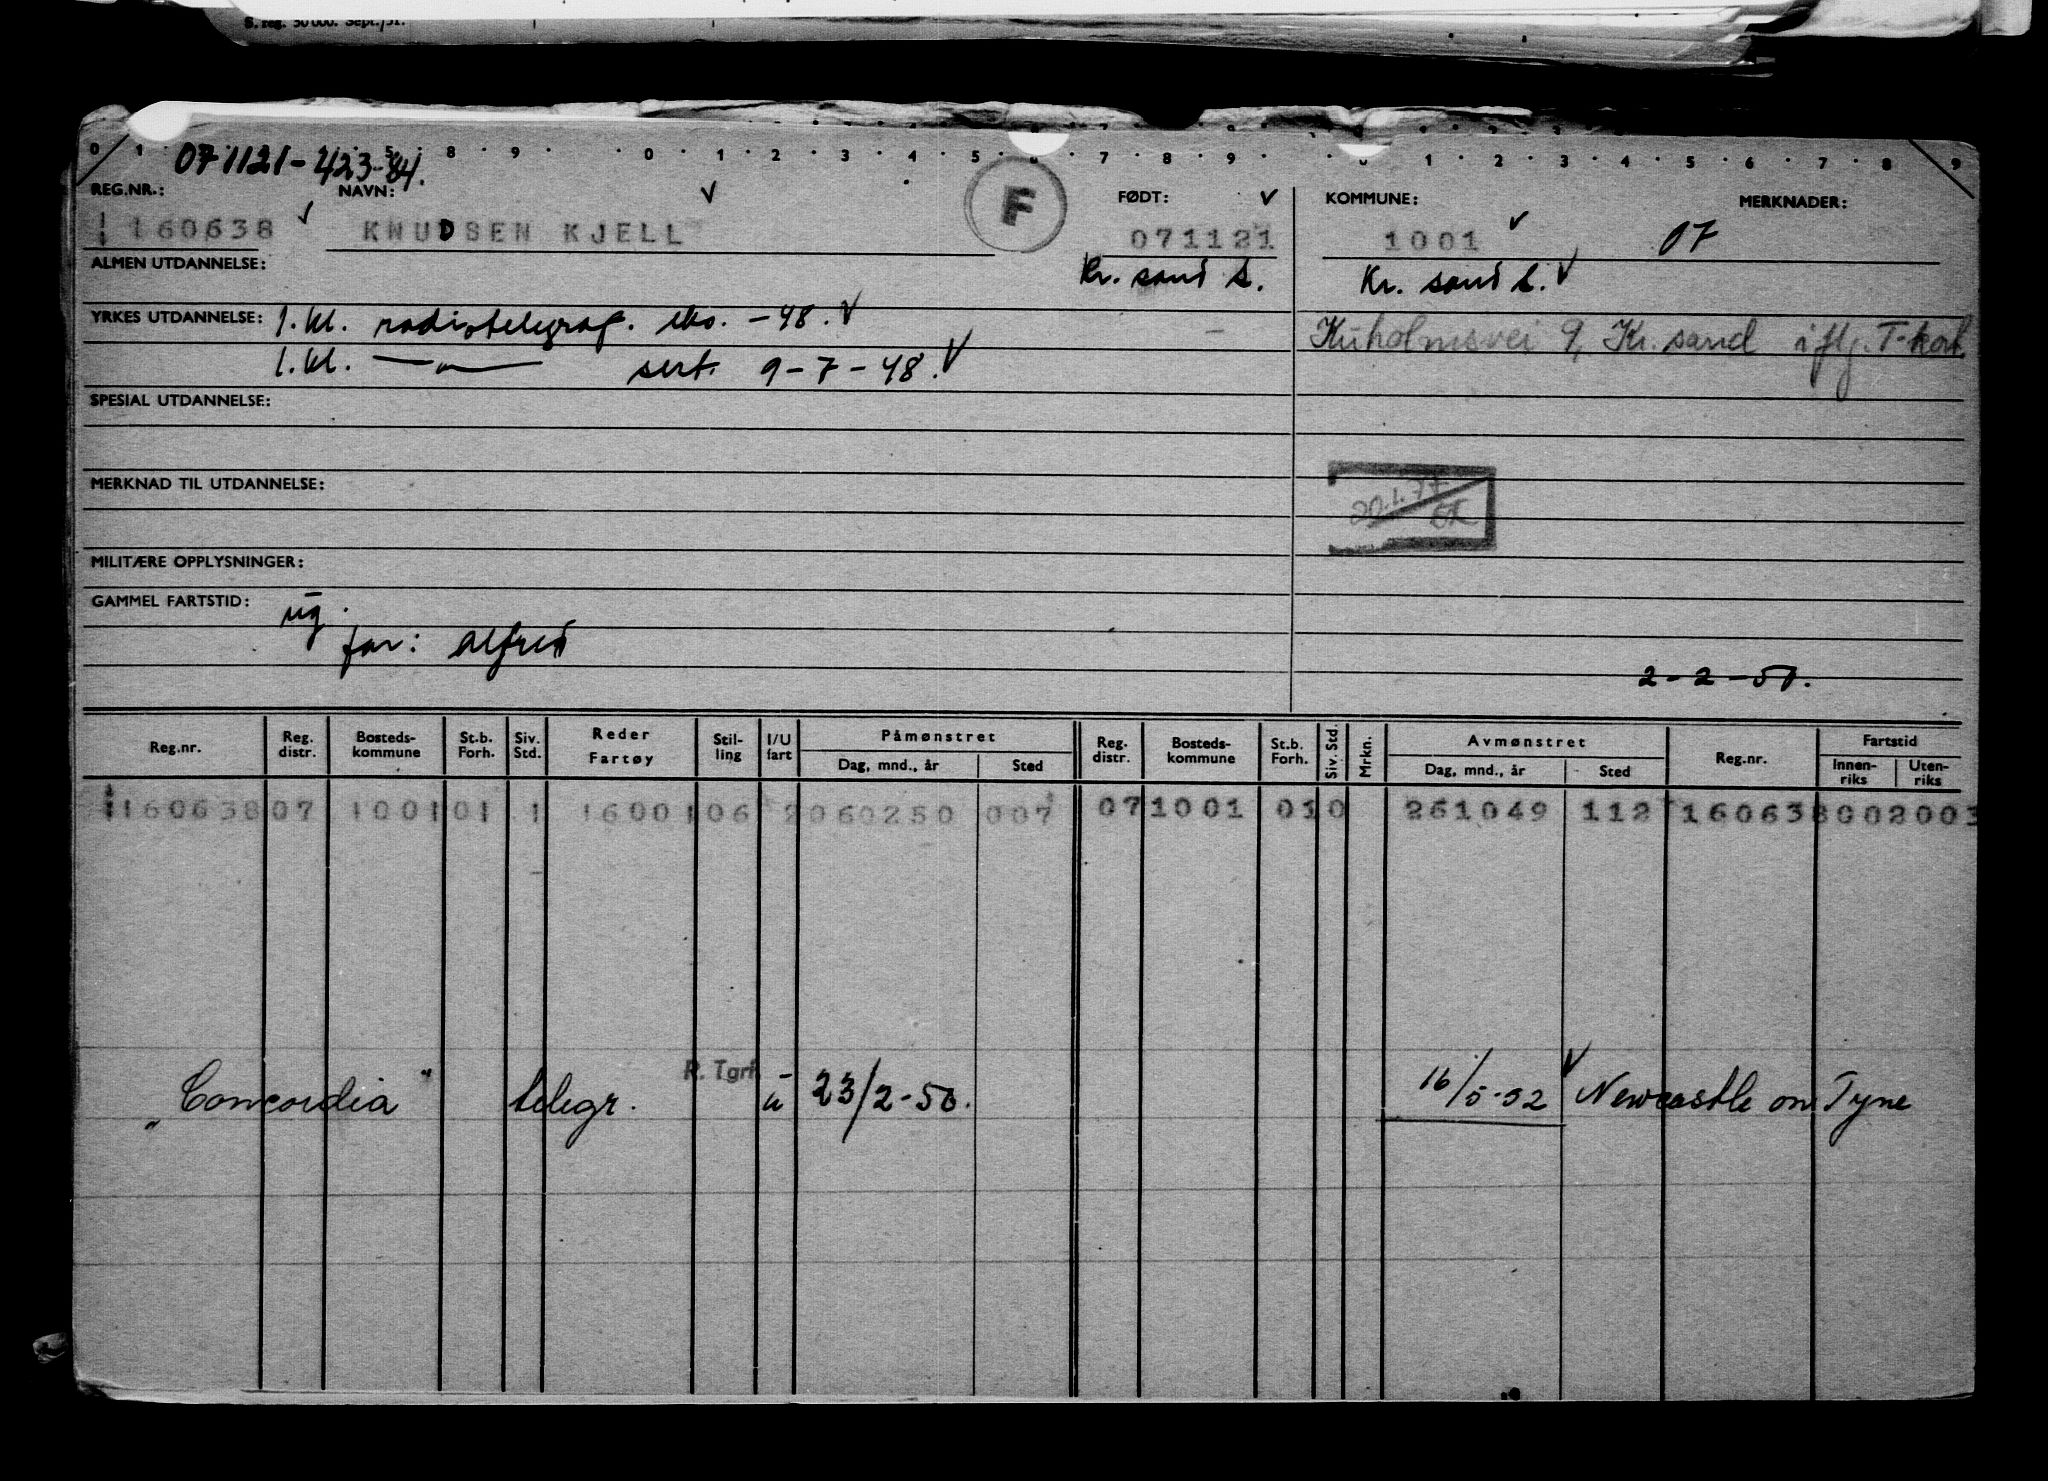 S. reg. 50 000. Sept./51.
0 1 5 8 9 0 1 2 3 4 5 6 7 8 9 0 1 2 3 4 5 6 7 8 9
071121-42384.
REG.NR.: NAVN: F FØDT: KOMMUNE: MERKNADER:
160638 KNUDSEN KJELL 071121 1001 07
ALMEN UTDANNELSE: Kr. sand S. Kr. sand S.
YRKES UTDANNELSE: 1. kl. radiotelegraf. eks. -48. Kuholmsvei 9, Kr. sand iflg. T-kort
1. kl. —〃— sert. 9-7-48.
SPESIAL UTDANNELSE:
MERKNAD TIL UTDANNELSE:
20.1.77
MILITÆRE OPPLYSNINGER:
GAMMEL FARTSTID: ug.
far: Alfred
2-2-50.
Reg.nr. Reg. distr. Bosteds- kommune St.b. Forh. Siv. Std. Reder Fartøy Stil- ling I/U fart Påmønstret Dag, mnd., år Sted Reg. distr. Bosteds- kommune St.b. Forh. Siv. Std. Mrkn. Avmønstret Dag, mnd., år Sted Reg.nr. Fartstid Innen- riks Uten- riks
160638 07 1001 01 1 16001 06 2 060250 007 07 1001 01 0 261049 112 160638 002003
R. Tgrf.
"Concordia" telegr. u 23/2-50. 16/5-52 Newcastle on Tyne